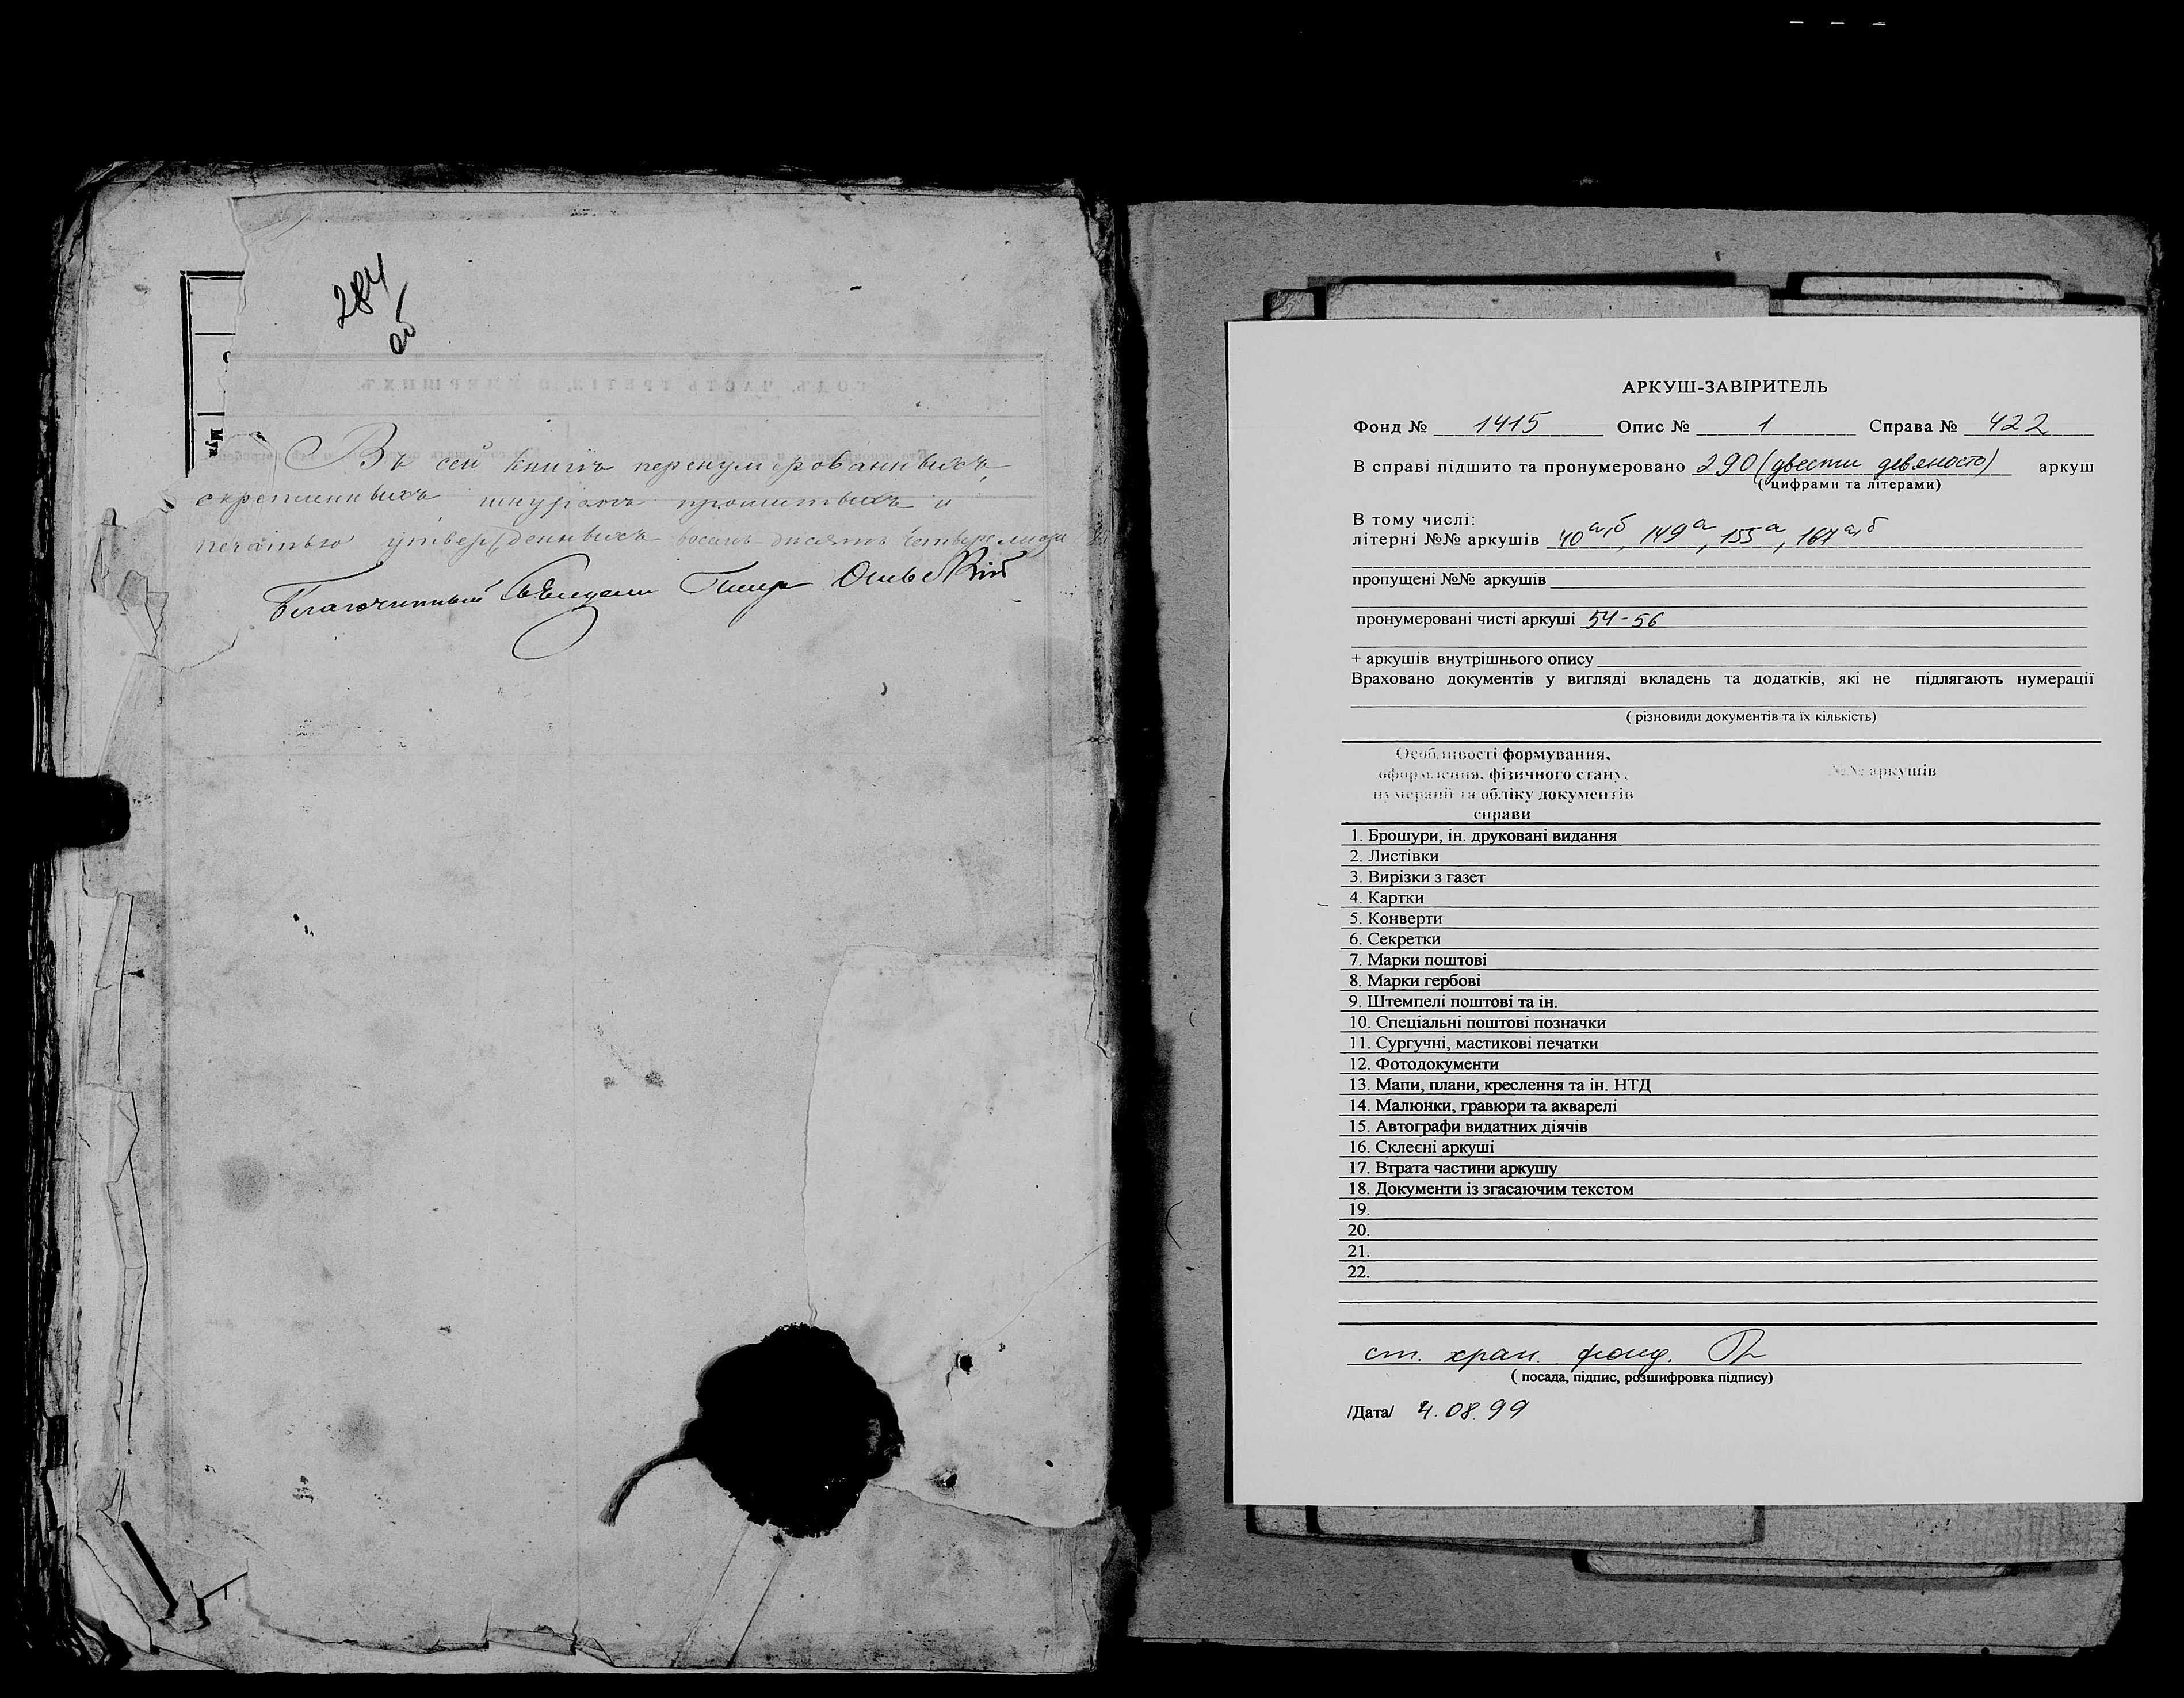 284
об
Въ сей книгѣ перенумерованныхъ,
скрепленныхъ шнуромъ прошитыхъ и
печатью утвержденныхъ восемь-десятъ четыре листа
Благочинный Священникъ
АРКУШ-ЗАВІРИТЕЛЬ
Фонд № 1415 Опис № 1 Справа № 422
В справі підшито та пронумеровано 290 (двести девяносто) аркуш
( цифрами та літерами)
В тому числі:
літерні №№ аркушів 40 а,б, 149 а, 155 а, 167 а,б
пропущені №№ аркушів
пронумеровані чисті аркуші 54-56
+ аркушів внутрішнього опису
Враховано документів у вигляді вкладень та додатків, які не підлягають нумерації
( різновиди документів та їх кількість)
Особливості формування,
оформлення, фізичного стану,
нумерації та обліку документів
справи
№№ аркушів
1. Брошури, ін. друковані видання
2. Листівки
3. Вирізки з газет
4. Картки
5. Конверти
6. Секретки
7. Марки поштові
8. Марки гербові
9. Штемпелі поштові та ін.
10. Спеціальні поштові позначки
11. Сургучні, мастикові печатки
12. Фотодокументи
13. Мапи, плани, креслення та ін. НТД
14. Малюнки, гравюри та акварелі
15. Автографи видатних діячів
16. Склеєні аркуші
17. Втрата частини аркушу
18. Документи із згасаючим текстом
19.
20.
21.
22.
ст. хран. фонд.
( посада, підпис, розшифровка підпису)
/Дата/ 4.08.99